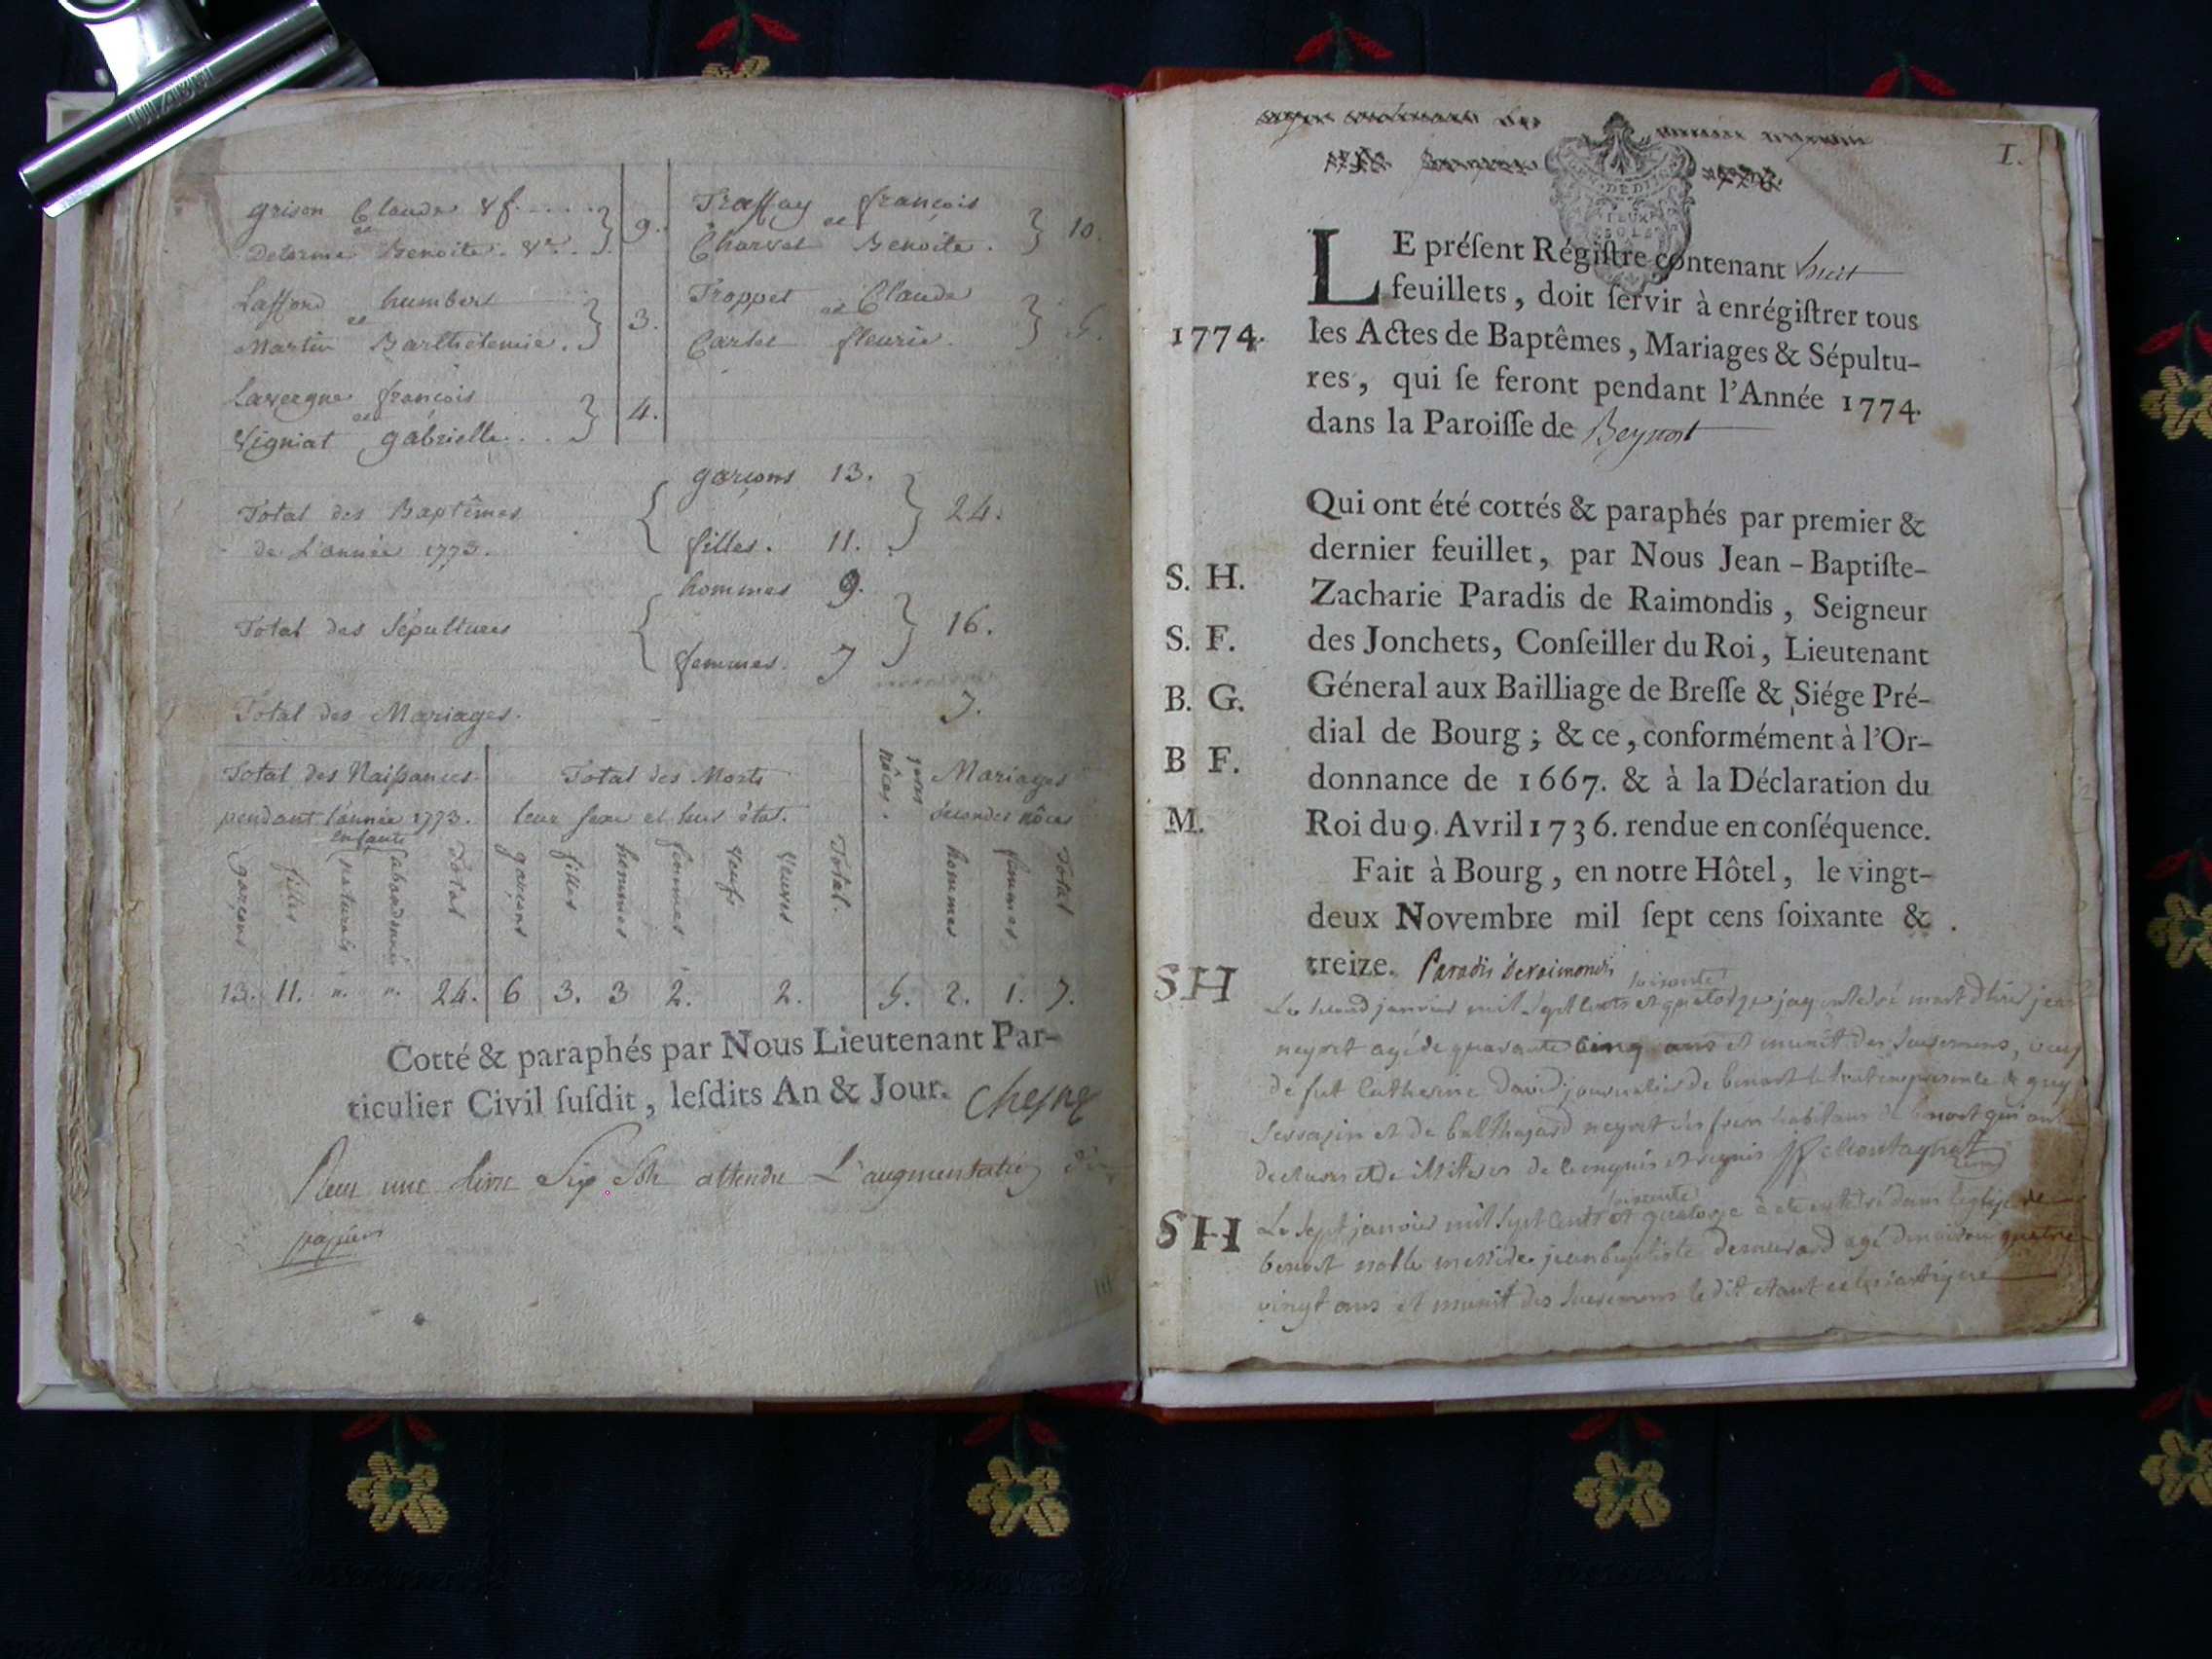 grison Claude vf. . . . . } 9.
et
delorme Benoite. ve. . }
Laffond humbert } 3.
et
Martin Barthelemie. }
Lavergne françois } 4.
et
Vigniat gabrielle. . . }
Traffay françois } 10.
et
Charvet Benoite. }
Troppet Claude }
et
Carlet fleurie. }
garçons 13. } 24.
Total des Baptêmes {
de L'année 1773. filles. 11.
hommes 9. } 16.
Total des Sépultures {
femmes. 7
Total des Mariages. 7.
Total des Naissances
pendant l'année 1773.
Total des Morts
leur sexe et leur état.
Mariages
secondes nôces
nôces.
enfants
garçons filles naturels abandonnés Total garçons filles hommes femmes veufs veuves Total. hommes femmes Total
13. 11. ". ". 24. 6 3. 3 2. 2. 5. 2. 1. 7.
Cotté & paraphés par Nous Lieutenant Par-
ticulier Civil susdit, lesdits An & Jour. Chesne
une livre Six Sols attendu L'augmentation
papier
I.
LE présent Régistre contenant huit
feuillets, doit servir à enrégistrer tous
1774. les Actes de Baptêmes, Mariages & Sépultu-
res, qui se feront pendant l'Année 1774.
dans la Paroisse de Beynost
Qui ont été cottés & paraphés par premier &
dernier feuillet, par Nous Jean-Baptiste-
S. H. Zacharie Paradis de Raimondis, Seigneur
S. F. des Jonchets, Conseiller du Roi, Lieutenant
B. G. Géneral aux Bailliage de Bresse & Siége Pré-
B F. dial de Bourg; & ce, conformément à l'Or-
donnance de 1667. & à la Déclaration du
M. Roi du 9. Avril 1736. rendue en conséquence.
Fait à Bourg, en notre Hôtel, le vingt-
deux Novembre mil sept cens soixante &
treize. Paradis deraimondis
soixante
SH Le second janvier mil sept cents et quatorze
neyret agé de quarante cinq ans et munit des sacremens,
de fut Catherine David journalier de benost
et de balthazard neyret habitans de benost qui ont
de de requis
soixante
SH Le sept janvier mil sept cents et quatorze a été enterré dans l'eglise de
benost noble messire jean baptiste agé denviron quatre
vingt ans et munit des sacremens le dit etant eclesiastique